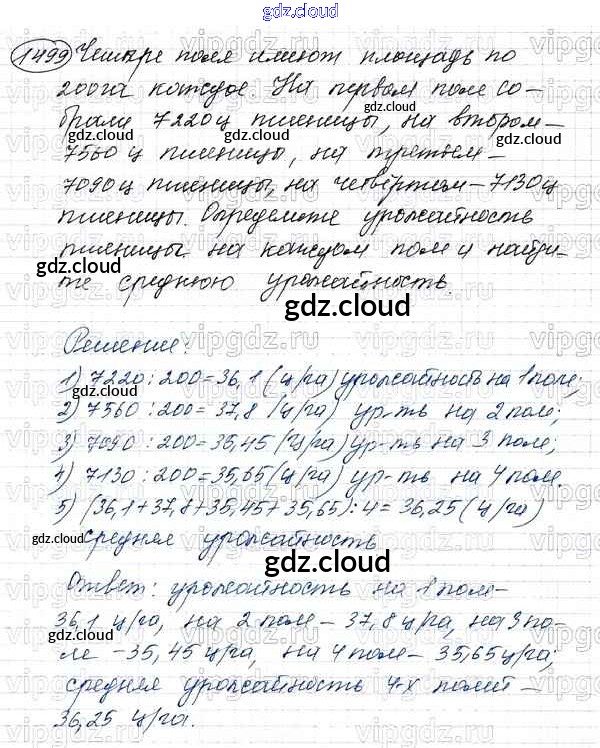 gdz.cloud
1499 Четыре поля имеют площадь по
200га каждое. На первом поле со-
gdz.cloud
брали 7220ц пшеницы, на втором -
7560 ц пшеницы, на третьем -
7090ц пшеницы, на четвёртом - 7130ц
пшеницы. Определите урожайность
пшеницы на каждом поле и найди-
gdz.cloud
те среднюю урожайность.
gdz.cloud
Решение:
1) 7220 : 200 = 36,1 (ц/га) урожайность на 1 поле;
gdz.cloud
2) 7560 : 200 = 37,8 (ц/га) ур-ть на 2 поле;
3) 7090 : 200 = 35,45 (ц/га) ур-ть на 3 поле;
4) 7130 : 200 = 35,65 (ц/га) ур-ть на 4 поле.
5) (36,1+37,8+35,45+35,65) : 4 = 36,25 (ц/га)
gdz.cloud
средняя урожайность
gdz.cloud
Ответ: урожайность на 1 поле -
36,1 ц/га, на 2 поле - 37,8 ц/га, на 3 по-
gdz.cloud
ле - 35,45 ц/га, на 4 поле - 35,65 ц/га;
средняя урожайность 4-х полей -
gdz.cloud
36,25 ц/га.